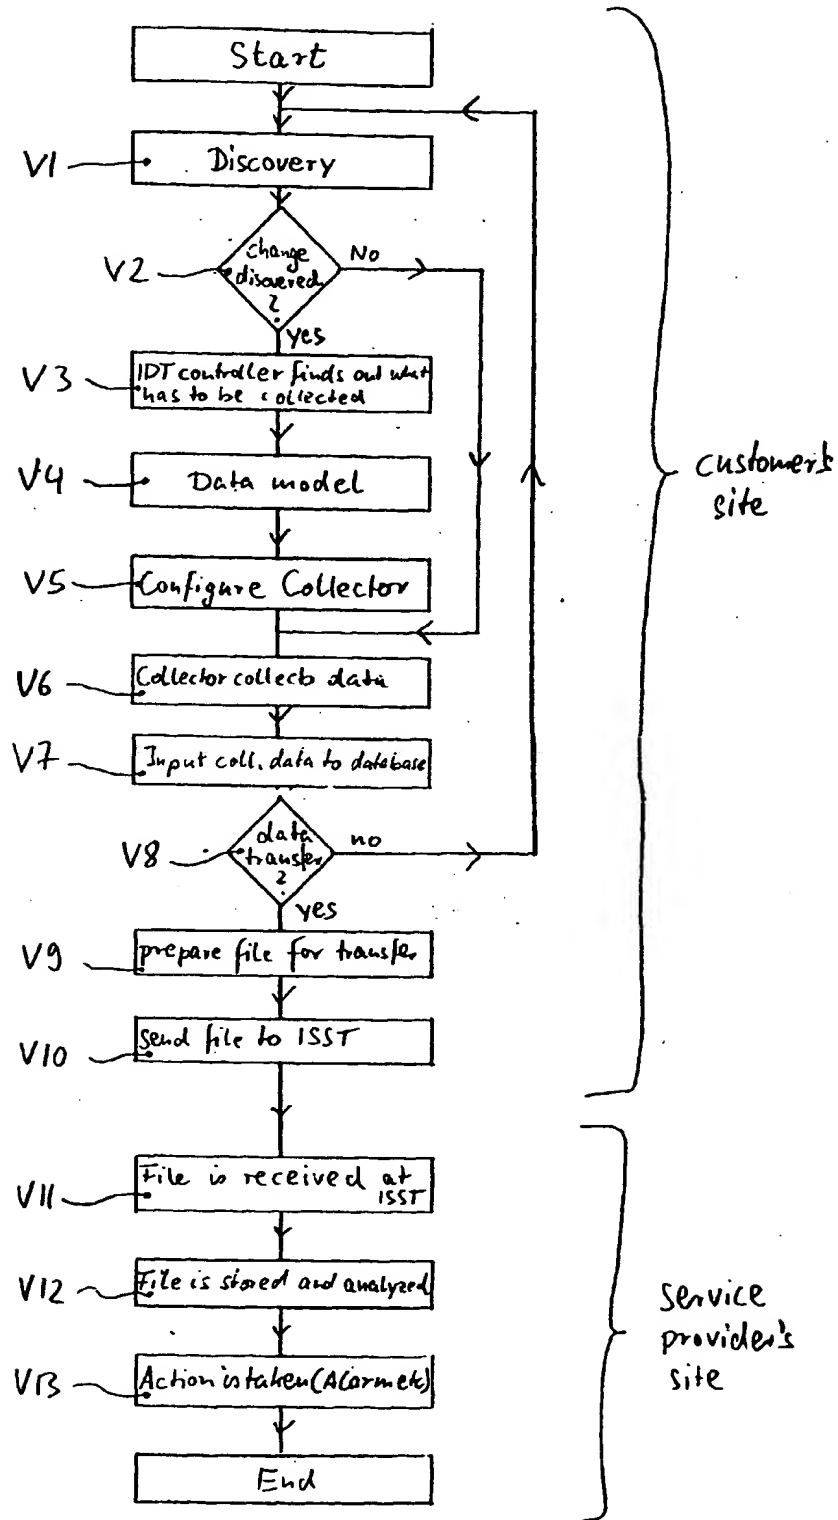 Start
V1
Discovery
V2
change
discovered
?
No
yes
V3
IDT controller finds out what
has to be collected
V4
Data model
V5
Configure Collector
V6
Collector collects data
V7
Input coll. data to database
V8
data
transfer
?
no
yes
V9
prepare file for transfer
V10
send file to ISST
customer's
site
V11
File is received at
ISST
V12
File is stored and analyzed
V13
Action is taken (Alarm etc)
End
service
provider's
site